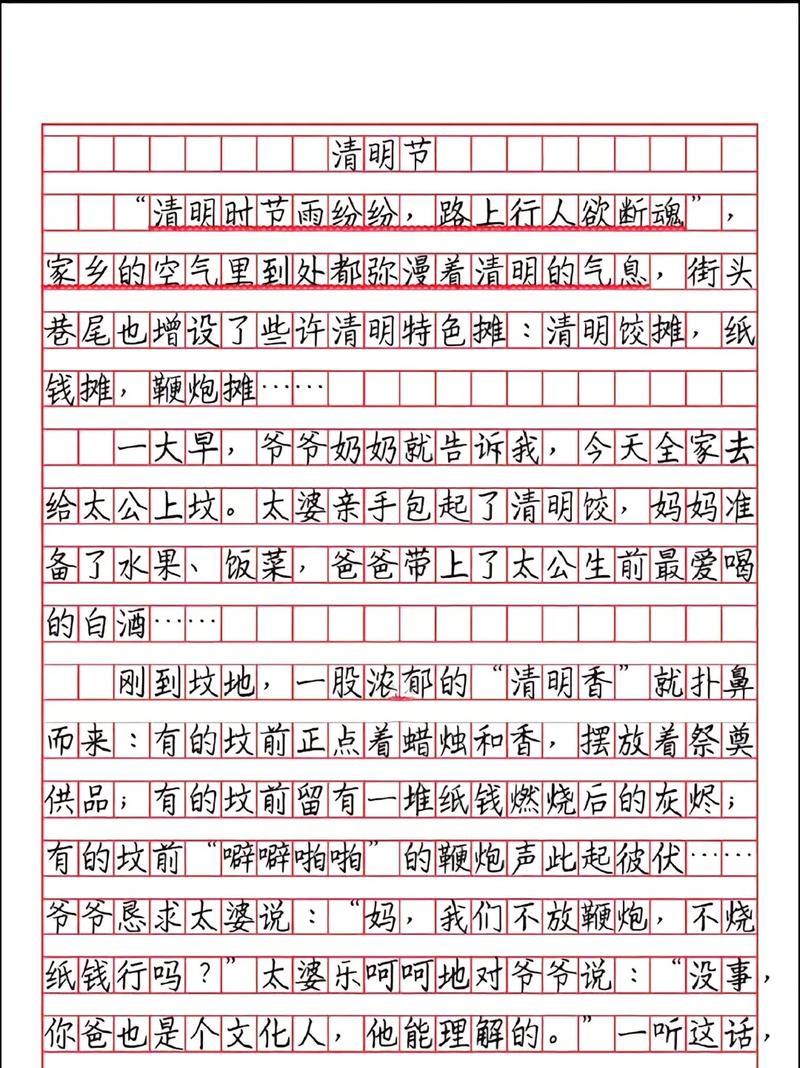 清明节
“清明时节雨纷纷，路上行人欲断魂”，
家乡的空气里到处都弥漫着清明的气息，街头
巷尾也增设了些许清明特色摊：清明饺摊，纸
钱摊，鞭炮摊……
一大早，爷爷奶奶就告诉我，今天全家去
给太公上坟。太婆亲手包起了清明饺，妈妈准
备了水果、饭菜，爸爸带上了太公生前最爱喝
的白酒……
刚到坟地，一股浓郁的“清明香”就扑鼻
而来：有的坟前正点着蜡烛和香，摆放着祭奠
供品；有的坟前留有一堆纸钱燃烧后的灰烬；
有的坟前“噼噼啪啪”的鞭炮声此起彼伏……
爷爷恳求太婆说：“妈，我们不放鞭炮，不烧
纸钱行吗？”太婆乐呵呵地对爷爷说：“没事，
你爸也是个文化人，他能理解的。”一听这话，